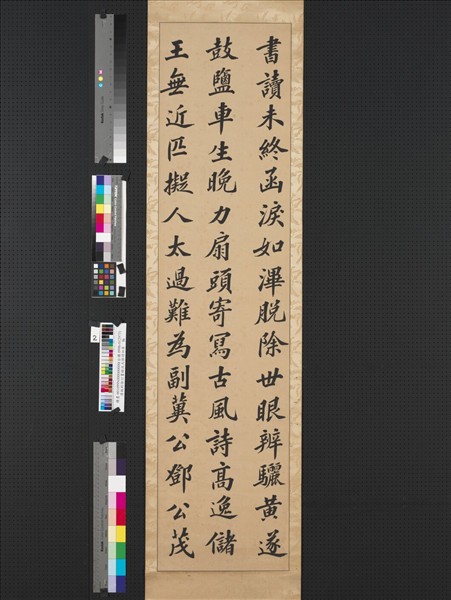 書讀未終函淚如渾脫除世眼辨驪黃遂
鼓鹽車生晚力扇頭寄寫古風詩高逸儲
王無近匹擬人太過難為副冀公鄧公茂
2